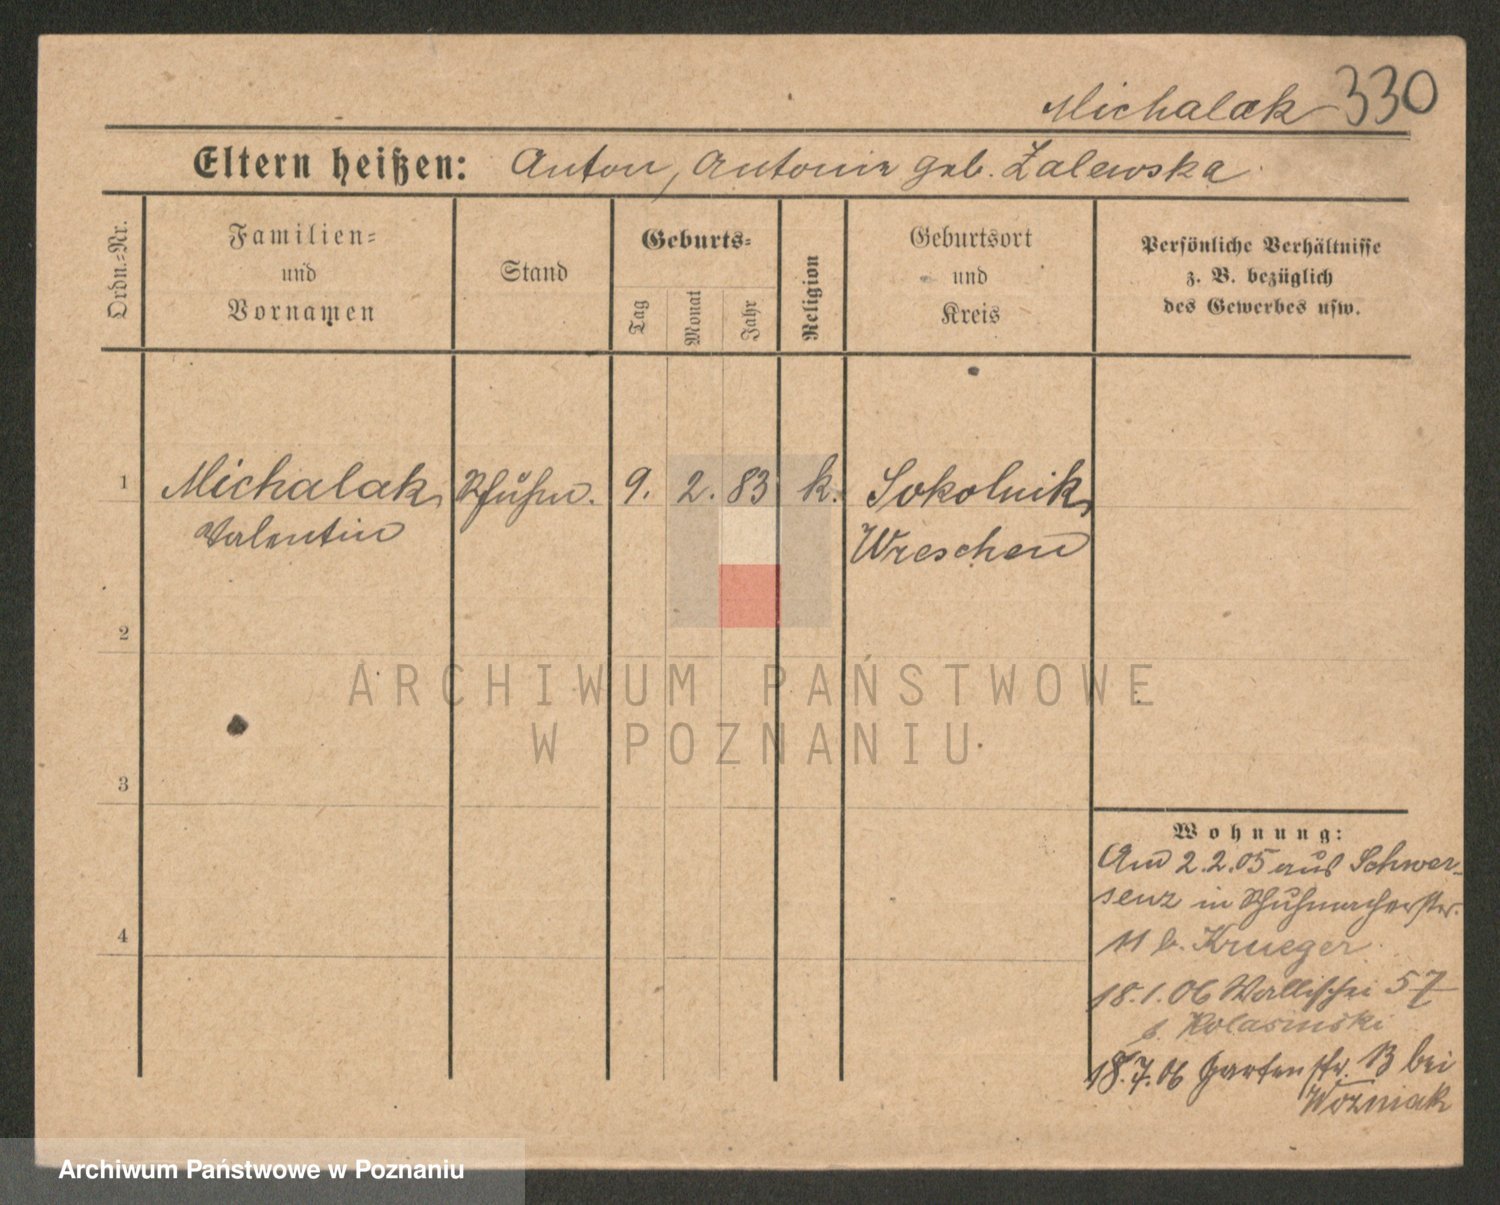 Michalak 330
Eltern heißen: Anton, Antonie geb. Zalewska
Ordn.-Nr.
Familien-
und
Vornamen
Stand
Geburts-
Tag
Monat
Jahr
Religion
Geburtsort
und
Kreis
Persönliche Verhältnisse
z. B. bezüglich
des Gewerbes usw.
1 Michalak, Schuhm. 9. 2. 83 k. Sokolnik,
Valentin Wreschen
2
3
4
Wohnung:
Am 2.2.05 aus Schwer-
senz in Schuhmacherstr.
11 b. Krueger
18.1.06 Wallischei 57
b. Kolasinski
18.7.06 Gartenstr. 13 bei
Wozniak
ARCHIWUM PAŃSTWOWE
W POZNANIU
Archiwum Państwowe w Poznaniu